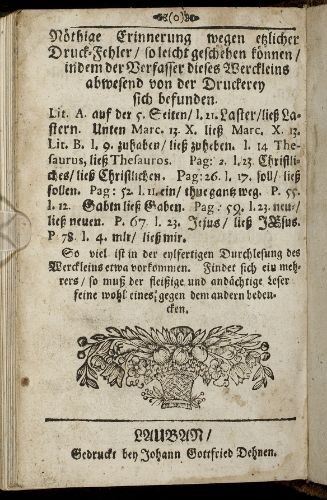 (o)
Nöthige Erinnerung wegen etzlicher
Druck-Fehler / so leicht geschehen können /
indem der Verfasser dieses Werckleins
abwesend von der Druckerey
sich befunden.
Lit. A. auf der 5. Seiten / l. 21. Laster / ließ La-
stern. Unten Marc. 13. X. ließ Marc. X. 13.
Lit. B. l. 9. zuhaben / ließ zuheben. l. 14 The-
saurus, ließ Thesauros. Pag: 2. l. 23. Christli-
ches / ließ Christlichen. Pag: 26. l. 17. soll / ließ
sollen. Pag: 52. l. 11. ein / thue gantz weg. P. 55.
l. 12. Gabtn ließ Gaben. Pag: 59. l. 23. neu- /
ließ neuen. P. 67. l. 23. Jejus / ließ JEsus.
P 78. l. 4. mlr / ließ mir.
So viel ist in der eylfertigen Durchlesung des
Werckleins etwa vorkommen. Findet sich ein meh-
rers / so muß der fleißige und andächtige Leser
seine wohl eines, gegen dem andern beden-
cken.
LAUBAN /
Gedruckt bey Johann Gottfried Dehnen.